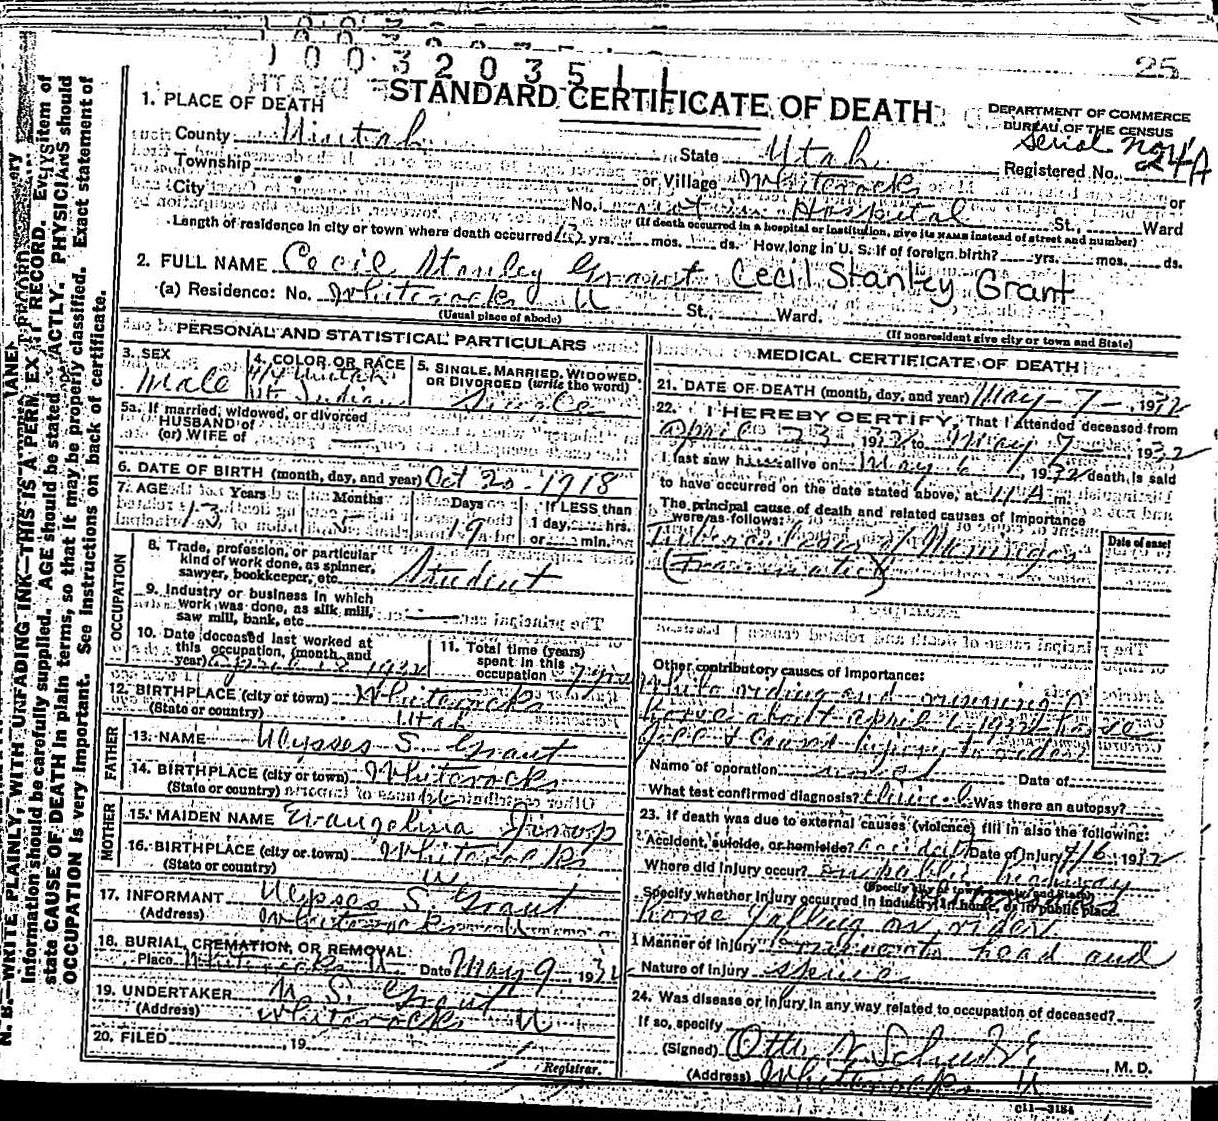 10032035
25
STANDARD CERTIFICATE OF DEATH
DEPARTMENT OF COMMERCE
BUREAU OF THE CENSUS
Serial No.
1. PLACE OF DEATH
County Uintah State Utah Registered No. 24A
Township or Village Whiterocks or
City No. Hospital St., Ward
(If death occurred in a hospital or institution, give its NAME instead of street and number)
Length of residence in city or town where death occurred 13 yrs. mos. ds. How long in U. S. if of foreign birth? yrs. mos. ds.
2. FULL NAME Cecil Stanley Grant Cecil Stanley Grant
(a) Residence: No. Whiterocks U St., Ward.
(Usual place of abode) (If nonresident give city or town and State)
PERSONAL AND STATISTICAL PARTICULARS
3. SEX
Male
4. COLOR OR RACE
Uintah
Ut Indian
5. SINGLE, MARRIED, WIDOWED,
OR DIVORCED (write the word)
Single
5a. If married, widowed, or divorced
HUSBAND of
(or) WIFE of
6. DATE OF BIRTH (month, day, and year) Oct 20 - 1918
7. AGE Years Months Days If LESS than
1 day, hrs.
13 19 or min.
OCCUPATION
8. Trade, profession, or particular
kind of work done, as spinner,
sawyer, bookkeeper, etc. Student
9. Industry or business in which
work was done, as silk mill,
saw mill, bank, etc.
10. Date deceased last worked at
this occupation, (month and
year) April 1932
11. Total time (years)
spent in this
occupation 7 yrs
12. BIRTHPLACE (city or town) Whiterocks
(State or country) Utah
FATHER
13. NAME Ulysses S. Grant
14. BIRTHPLACE (city or town) Whiterocks
(State or country)
MOTHER
15. MAIDEN NAME Evangelina Jinrop
16. BIRTHPLACE (city or town) Whiterocks
(State or country) U.
17. INFORMANT Ulysses S. Grant
(Address) Whiterocks
18. BURIAL, CREMATION, OR REMOVAL
Place Whiterocks U Date May 9 1932
19. UNDERTAKER U. S. Grant
(Address) Whiterocks U
20. FILED , 19
Registrar.
MEDICAL CERTIFICATE OF DEATH
21. DATE OF DEATH (month, day, and year) May - 7 - , 1932
22. I HEREBY CERTIFY, That I attended deceased from
April 23, 1932, to May 7, 1932
I last saw h alive on May 6, 1932 death is said
to have occurred on the date stated above, at 11 A m.
The principal cause of death and related causes of importance
were as follows: Date of onset
Tuberculosis of Meninges
(Traumatic)
Other contributory causes of importance:
While riding and running
horse about April 6 1932 horse
fell & caused injury to rider
Name of operation Date of
What test confirmed diagnosis? Clinical Was there an autopsy?
23. If death was due to external causes (violence) fill in also the following:
Accident, suicide, or homicide? Accident Date of injury 4/6, 1932
Where did injury occur? on public highway
(Specify city or town, county, and State)
Specify whether injury occurred in industry, in home, or in public place.
horse falling on rider
Manner of injury head and
Nature of injury spine
24. Was disease or injury in any way related to occupation of deceased?
If so, specify
(Signed) Otto , M. D.
(Address) Whiterocks U
C11-3184
N. B.—WRITE PLAINLY, WITH UNFADING INK—THIS IS A PERMANENT RECORD. Every item of
information should be carefully supplied. AGE should be stated EXACTLY. PHYSICIANS should
state CAUSE OF DEATH in plain terms, so that it may be properly classified. Exact statement of
OCCUPATION is very important. See instructions on back of certificate.